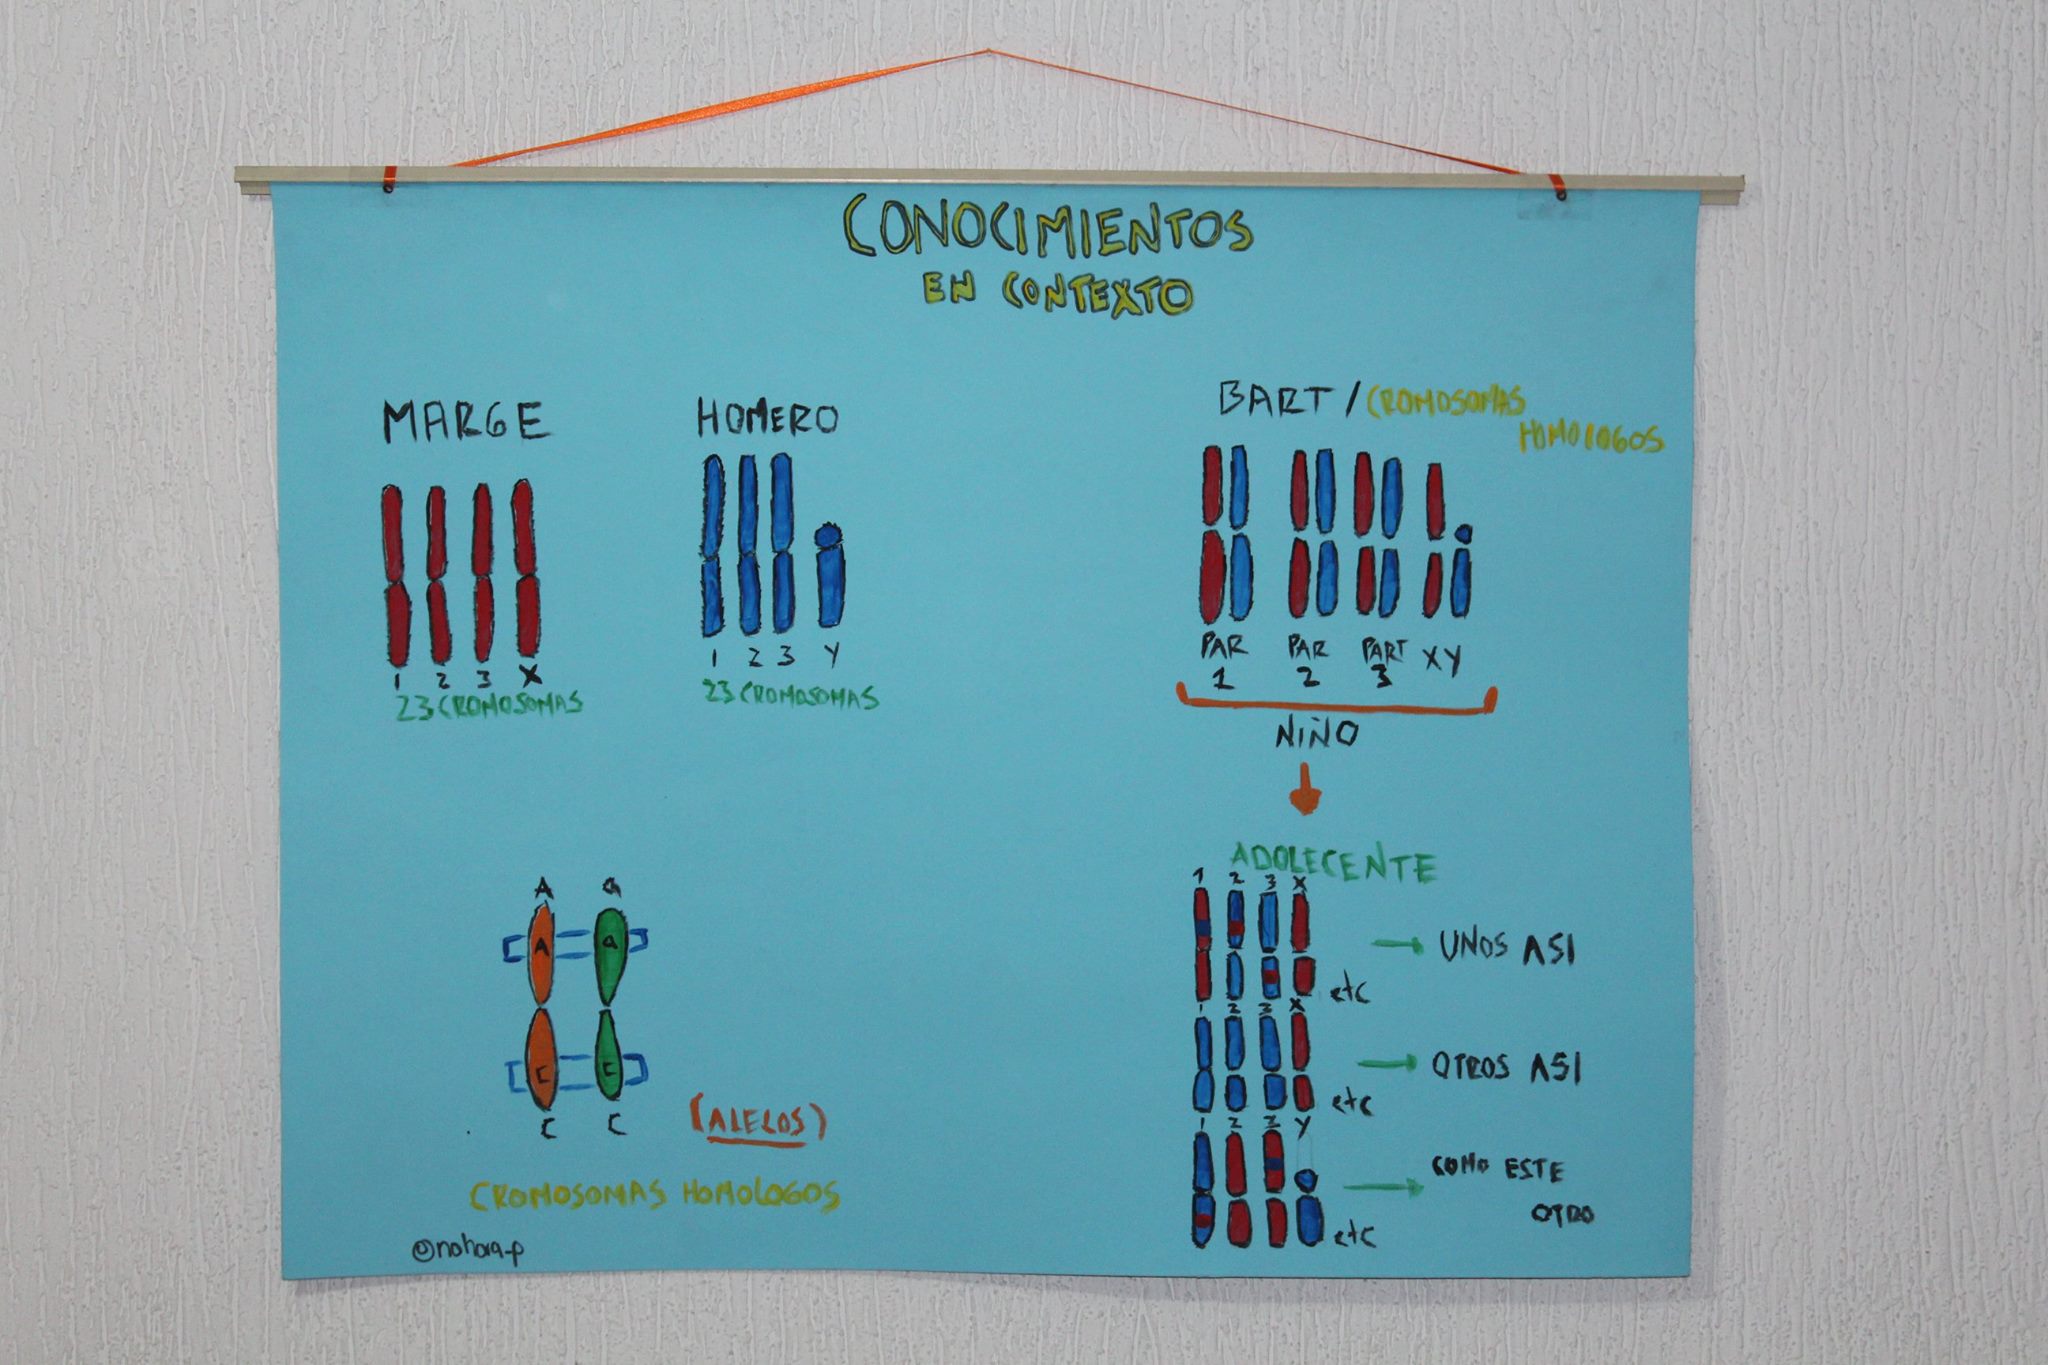 CONOCIMIENTOS
EN CONTEXTO
MARGE
1 2 3 X
23 CROMOSOMAS
HOMERO
1 2 3 Y
23 CROMOSOMAS
BART / CROMOSOMAS
HOMOLOGOS
PAR PAR PART XY
1 2 3
NIÑO
ADOLECENTE
1 2 3 X
UNOS ASI
etc
1 2 3 X
OTROS ASI
etc
1 2 3 Y
COMO ESTE
OTRO
etc
A a
A a
C C
C C
(ALELOS)
CROMOSOMAS HOMOLOGOS
@nohora-p